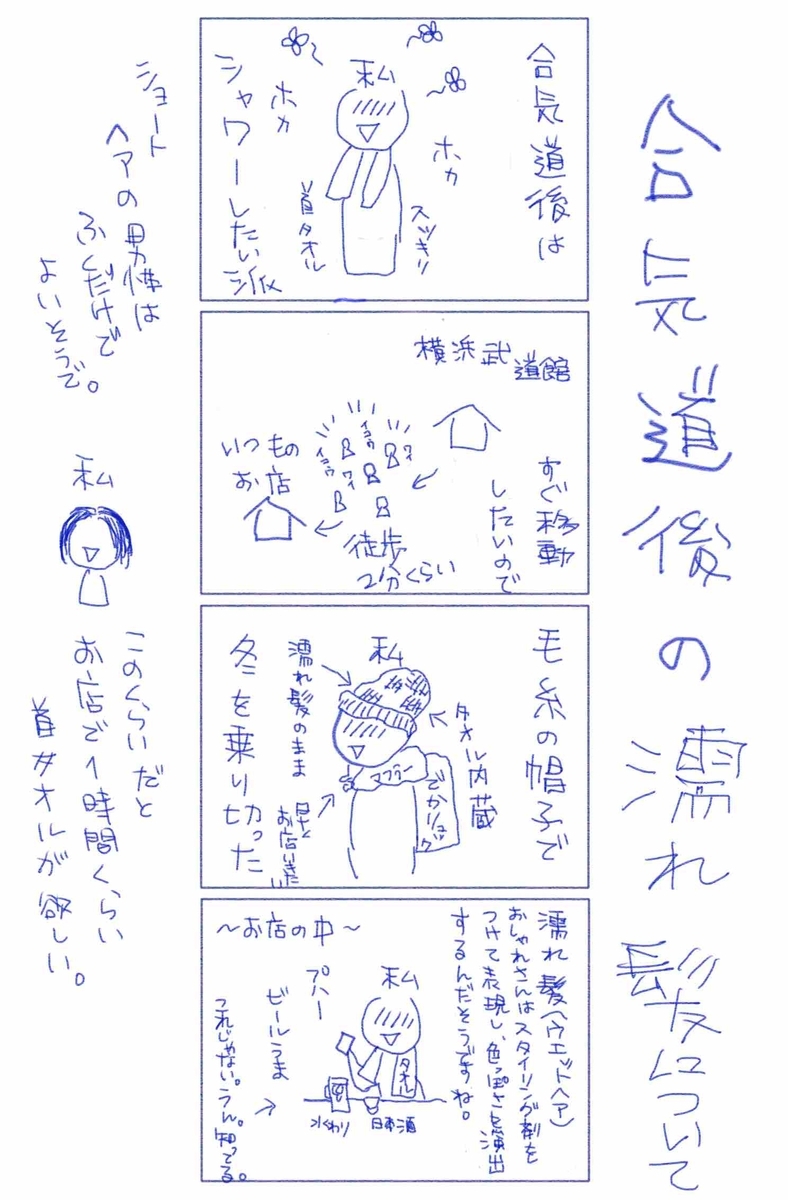 合気道後の濡れ髪について
合気道後は
私
ホカ
ホカ
スッキリ
首タオル
シャワーしたい派
横浜武道館
すぐ移動
したいので
イコウ
ワイ
イコウ
ワイ
徒歩
2分くらい
いつもの
お店
毛糸の帽子で
私
タオル内蔵
濡れ髪のまま
マフラー
でかリュック
早く
お店いきたい
冬を乗り切った
濡れ髪(ウエットヘア)
おしゃれさんはスタイリング剤を
つけて表現し、色っぽさを演出
するんだそうですね。
〜お店の中〜
私
プハー
ビールうま
タオル
水わり
日本酒
これじゃない。うん。知ってる。
ショート
ヘアの男性は
ふくだけで
よいそうで。
私
このくらいだと
お店で1時間くらい
首タオルが欲しい。